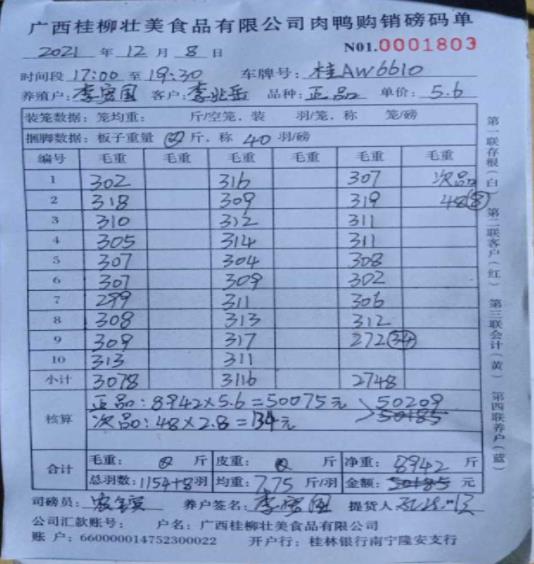 广西桂柳壮美食品有限公司肉鸭购销磅码单
2021 年 12 月 8 日 N01.0001803
时间段 17:00 至 19:30 车牌号: 桂AW6610
养殖户: 李宏国 客户: 品种: 正品 单价: 5.6
装笼数据: 笼均重: 斤/空笼, 装 羽/笼, 称 笼/磅
捆脚数据: 板子重量 斤, 称 40 羽/磅
编号 毛重 毛重 毛重 毛重 毛重 毛重 毛重
1 302 316 307 次品
2 318 309 319 48(8)
3 310 312 311
4 305 314 311
5 307 304 308
6 307 309 302
7 299 311 306
8 308 313 312
9 309 317 272(34)
10 313 311
小计 3078 3116 2748
核算 正品: 8942×5.6=50075元 50209
次品: 48×2.8=134元 50185
合计 毛重: 斤 皮重: 斤 净重: 8942 斤
总羽数: 1154+8羽 均重: 7.75 斤/羽 金额: 50185 元
司磅员: 养户签名: 李宏国 提货人
公司汇款账号: 户名: 广西桂柳壮美食品有限公司
账 户: 660000014752300022 开户行: 桂林银行南宁隆安支行
第一联存根(白) 第二联客户(红) 第三联会计(黄) 第四联养户(蓝)